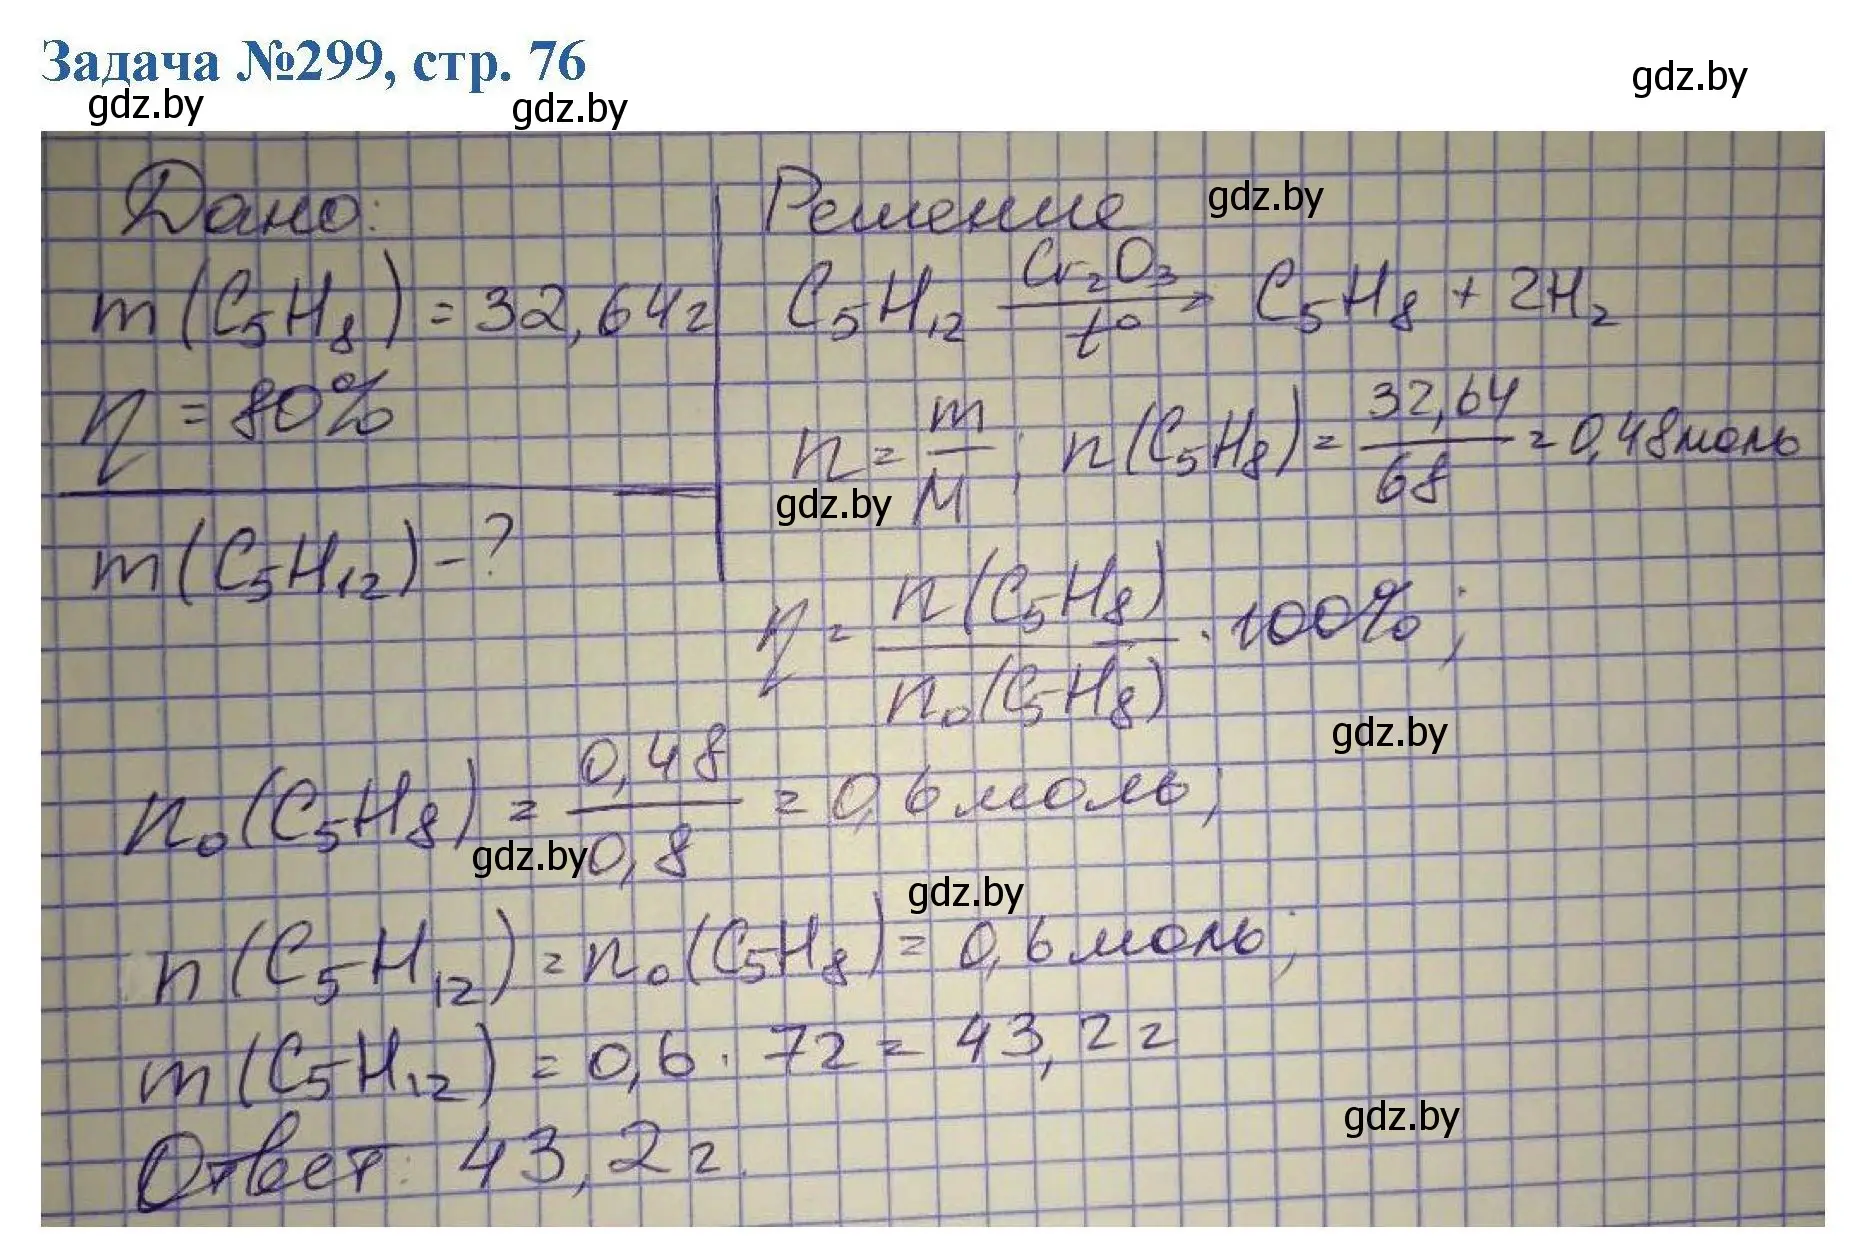 Задача №299, стр. 76
gdz.by gdz.by gdz.by
Дано:
m(C₅H₈) = 32,64г
η = 80%
m(C₅H₁₂) - ?
Решение gdz.by
C₅H₁₂ Cr₂O₃ / t° → C₅H₈ + 2H₂
n = m/M; n(C₅H₈) = 32,64/68 = 0,48моль
gdz.by
η = n(C₅H₈)/n₀(C₅H₈) · 100%;
gdz.by
n₀(C₅H₈) = 0,48/0,8 = 0,6моль;
gdz.by gdz.by
n(C₅H₁₂) = n₀(C₅H₈) = 0,6моль;
m(C₅H₁₂) = 0,6 · 72 = 43,2г
gdz.by
Ответ: 43,2г.